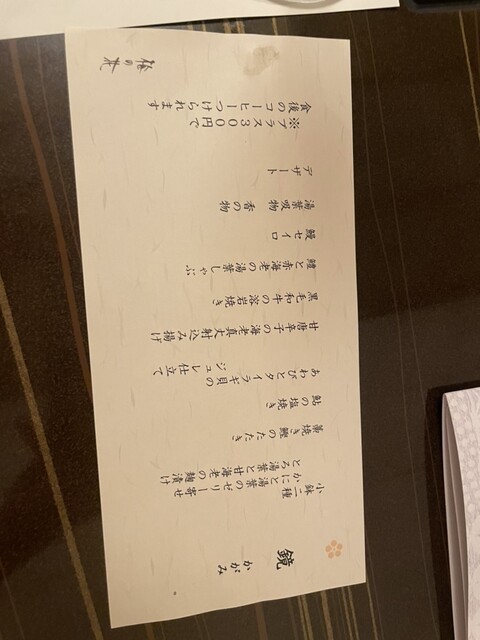 鏡
かがみ
小鉢二種
かにと湯葉のゼリー寄せ
とろ湯葉と甘海老の麹漬け
藁焼き鰹のたたき
鮎の塩焼き
あわびとタイラギ貝の
ジュレ仕立て
甘唐辛子の海老真丈射込み揚げ
黒毛和牛の溶岩焼き
鱧と赤海老の湯葉しゃぶ
鰻セイロ
湯葉吸物 香の物
デザート
※プラス300円で
食後のコーヒーつけられます
梅の花